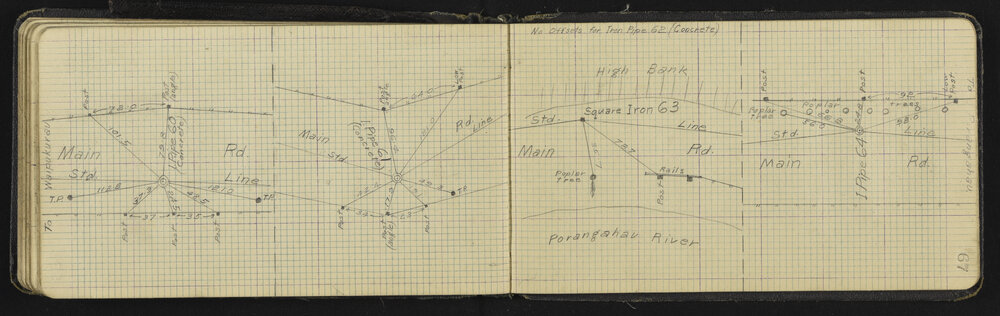 Post
78.0
Post
(angle)
101.5
79.8
I. Pipe 60
(Concrete)
Main
Rd.
Std.
Line
T.P.
116.8
121.0
T.P.
37
35
Post
Post
Post
To Waipukurau
Post
Angle
64.0
Post
Main
Std.
I. Pipe 61
(Concrete)
Rd.
Line
T.P.
Post
Post
(angle)
Post
23
No Offsets for Iron Pipe 62 (Concrete)
High Bank
Square Iron 63
Std.
Line
Main
Rd.
78.7
Poplar
tree
Rails
Post
Porangahau River
Post
Post
Post
Poplar
tree
Poplar
trees
58.0
Std.
Line
Main
Rd.
I Pipe 64
To Porangahau
67